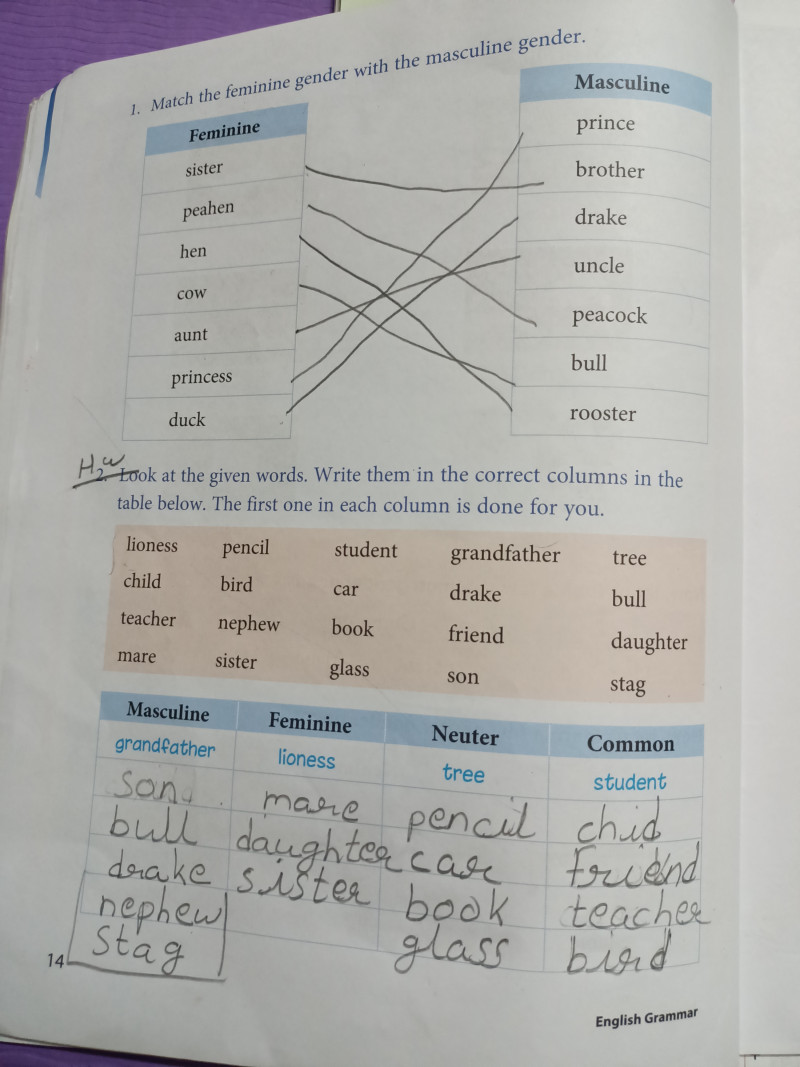 1. Match the feminine gender with the masculine gender.
Feminine Masculine
sister prince
peahen brother
hen drake
cow uncle
aunt peacock
princess bull
duck rooster
H.W
2. Look at the given words. Write them in the correct columns in the
table below. The first one in each column is done for you.
lioness pencil student grandfather tree
child bird car drake bull
teacher nephew book friend daughter
mare sister glass son stag
Masculine Feminine Neuter Common
grandfather lioness tree student
son mare pencil chid
bull daughter car friend
drake sister book teacher
nephew glass bird
Stag
14
English Grammar